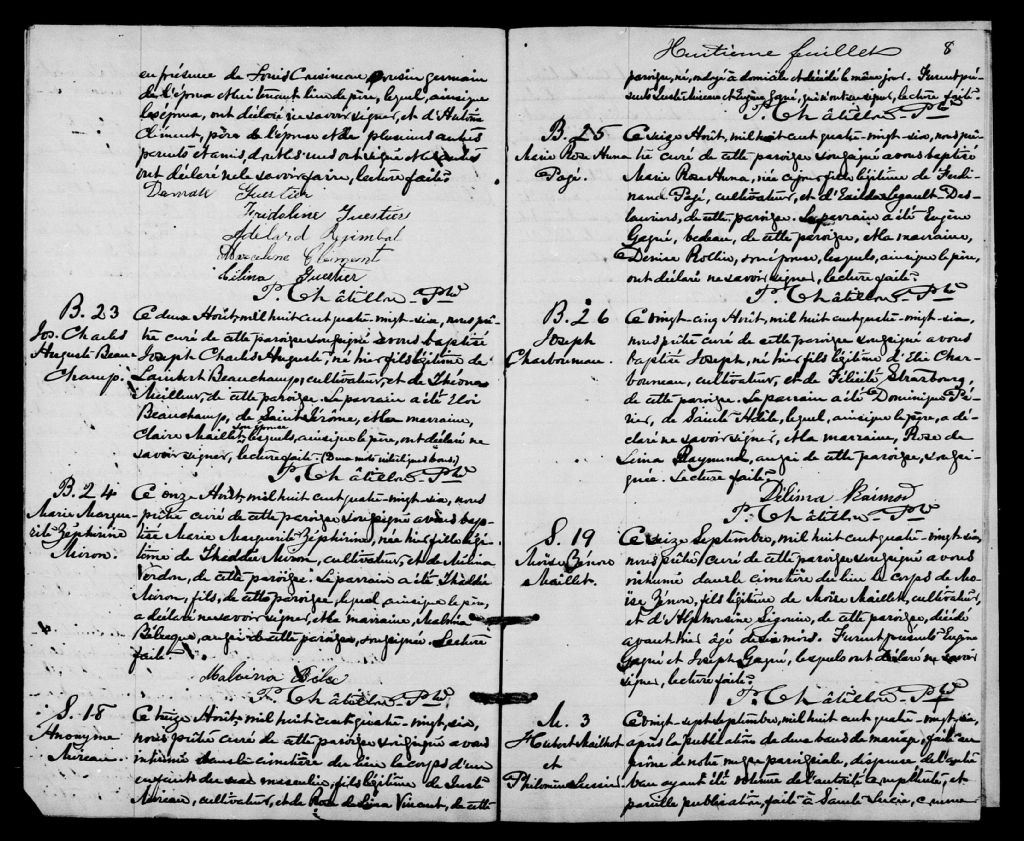 en présence de Louis Cousineau, cousin germain
de l'époux et lui tenant lieu de père, lequel, ainsi que
l'épouse, ont déclaré ne savoir signer, et d'
Clément, père de l'épouse et de plusieurs autres
parents et amis, dont les uns ont signé et les autres
ont déclaré ne le savoir faire, lecture faite.
Guertier
Fridoline Guertier
Adelard Rejimbal
Clément
Célina Guertier
P. Châtillon Ptre
B. 23
Jos. Charles
Auguste Beau-
Champ.
Ce deux Août, mil huit cent quatre-vingt-six, nous prê-
tre curé de cette paroisse soussigné avons baptisé
Joseph Charles Auguste, né hier fils légitime de
Lambert Beauchamp, cultivateur, et de Théona
Meilleur, de cette paroisse. Le parrain a été Eloi
Beauchamp, de Saint Jérôme, et la marraine,
Claire Maillet, son épouse lesquels, ainsi que le père, ont déclaré ne
savoir signer, lecture faite. (Deux mots nuls)
P. Châtillon Ptre
B. 24
Marie Margue-
rite Zéphirine
Miron.
Ce onze Août, mil huit cent quatre-vingt-six, nous
prêtre curé de cette paroisse soussigné avons bap-
tisé Marie Marguerite Zéphirine, née hier fille légi-
time de Thaddé Miron, cultivateur, et de Mélina
Verdon, de cette paroisse. Le parrain a été Thaddé
Miron, fils, de cette paroisse, lequel, ainsi que le père,
a déclaré ne savoir signer, et la marraine, Malvina
aussi de cette paroisse, soussignée. Lecture
faite.
Malvina
P. Châtillon Ptre
S. 18
Anonyme
Moreau.
Ce treize Août, mil huit cent quatre-vingt-six,
nous prêtre curé de cette paroisse soussigné avons
inhumé dans le cimetière du lieu le corps d'un
enfant du sexe masculin, fils légitime de Juste
Moreau, cultivateur, et de Rose de Lima Vincent, de cette
Huitième feuillet 8
paroisse, né, ondoyé à domicile et décédé le même jour. Furent pré-
sents Juste Moreau et Eugène Gagné, qui n'ont su signer, lecture faite.
P. Châtillon Ptre
B. 25
Marie Rose Anna
Pagé.
Ce seize Août, mil huit cent quatre-vingt-six, nous prê-
tre curé de cette paroisse soussigné avons baptisé
Marie Rose Anna, née ce jour fille légitime de Ferdi-
nand Pagé, cultivateur, et d'Exilda Legault Des-
lauriers, de cette paroisse. Le parrain a été Eugène
Gagné, bedeau, de cette paroisse, et la marraine,
Denise Rollin, son épouse, lesquels, ainsi que le père,
ont déclaré ne savoir signer, lecture faite.
P. Châtillon Ptre
B. 26
Joseph
Charbonneau.
Ce vingt-cinq Août, mil huit cent quatre-vingt-six,
nous prêtre curé de cette paroisse soussigné avons
baptisé Joseph, né hier fils légitime d'Elie Char-
bonneau, cultivateur, et de Félicité Strasbourg,
de cette paroisse. Le parrain a été Dominique
de Sainte Adèle, lequel, ainsi que le père, a dé-
claré ne savoir signer, et la marraine, Rose de
Lima Raymond, aussi de cette paroisse, soussi-
gnée. Lecture faite.
Délima Raimod
P. Châtillon Ptre
S. 19
Moïse Zénon
Maillet.
Ce seize Septembre, mil huit cent quatre-vingt-six,
nous prêtre curé de cette paroisse soussigné avons
inhumé dans le cimetière du lieu le corps de Mo-
ïse Zénon, fils légitime de Moïse Maillet, cultivateur,
et d'Alphonsine Ligouin, de cette paroisse, décédé
avant hier âgé de six mois. Furent présents Eugène
Gagné et Joseph Gagné, lesquels ont déclaré ne savoir
signer, lecture faite.
P. Châtillon Ptre
M. 3
Hubert Mailhot
et
Philomène
Ce vingt-sept septembre, mil huit cent quatre-vingt-six,
après la publication de deux bans de mariage, faite au
prône de notre messe paroissiale, dispense de l'autre
ban ayant été obtenue de l'autorité compétente, et
pareille publication, faite à Sainte Lucie, comme